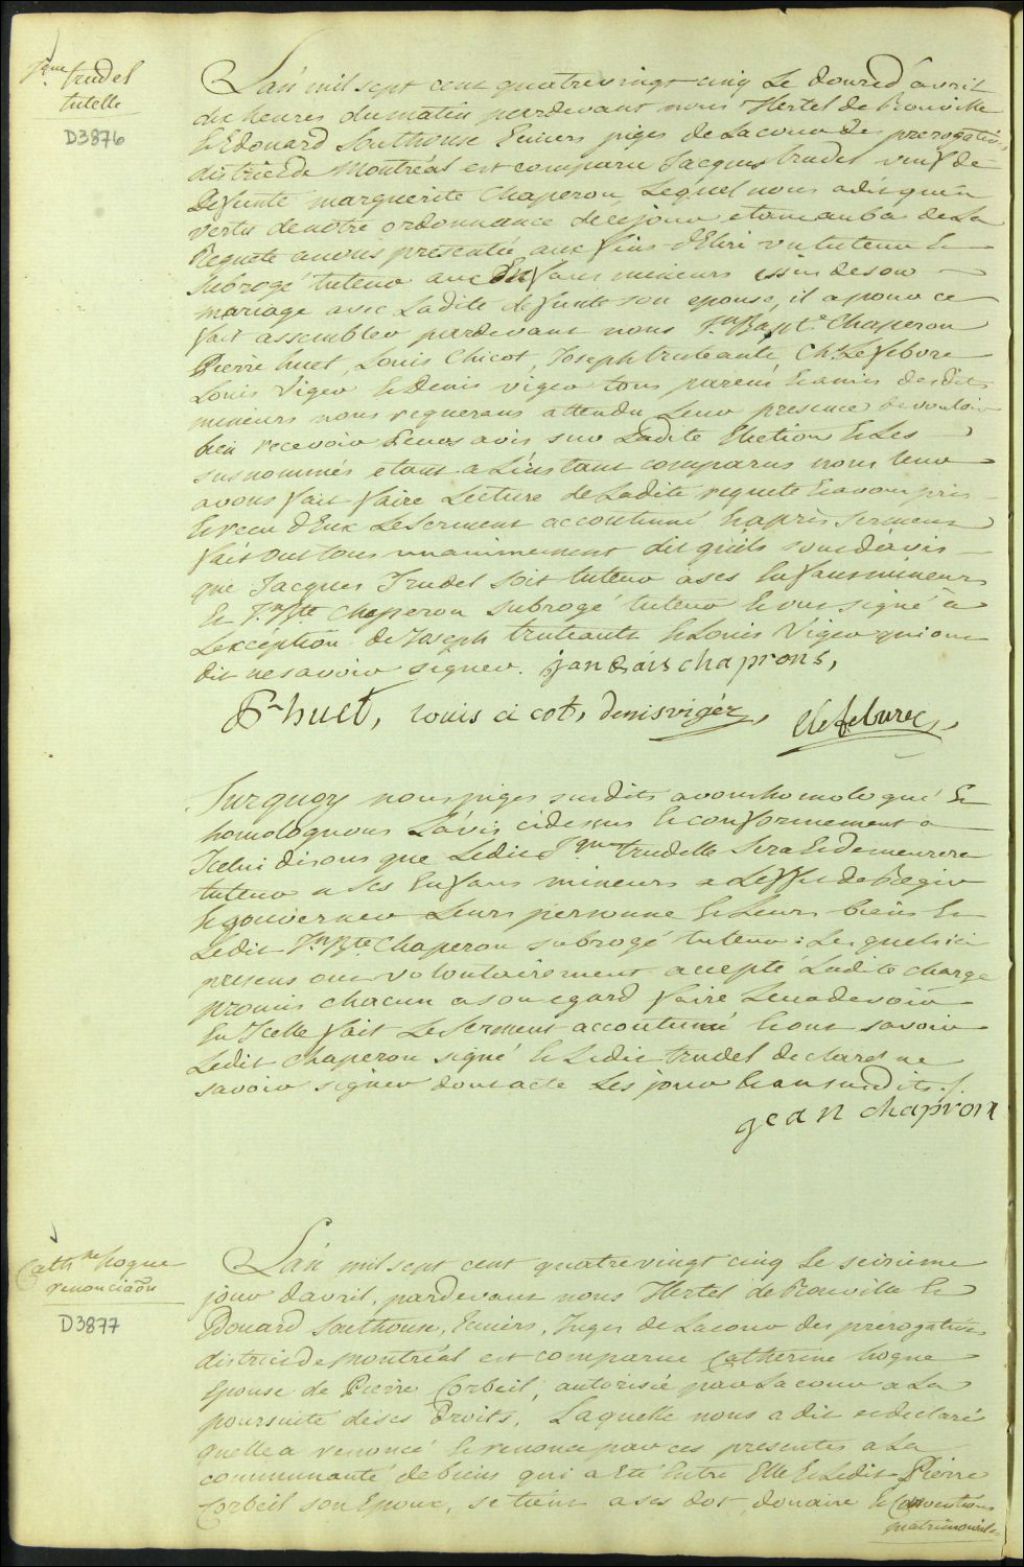 Jqme trudel
tutelle
D3876
L'an mil sept cent quatrevingt cinq Le douze d'avril
dix heures du matin pardevant nous Hertel de Rouville
& Edouard Southouse Ecuiers juges de La cour des prerogatives
district de Montréal est comparu Jacques trudel veuf de
Defunte marguerite Chaperon, Lequel nous a dit qu'en
vertu de notre ordonnance de ce jour etant au bas de La
Requete a nous presentée aux fins d'Elire un tuteur &
subrogé tuteur aux Enfans mineurs issus de son
mariage avec Ladite defunte son epouse, il a pour ce
fait assembler pardevant nous Jn Bapte Chaperon
Pierre huet, Louis Chicot, Joseph truteaute, Chs Lefebvre
Louis Viger & Denis viger tous parens & amis desdits
mineurs nous requerans attendu Leur presence de vouloir
bien recevoir Leurs avis sur Ladite Election & Les
susnommés etant a L'instant comparus nous leur
avons fait faire Lecture de Ladite requete & avons pris
& recu d'Eux Le Serment accoutumé & après serment
fait ont tous unanimement dit qu'ils sont d'avis
que Jacques Trudel soit tuteur a ses Enfans mineurs
& Jn Bte Chaperon subrogé tuteur & ont signé a
L'exception de Joseph truteaute & Louis Viger qui ont
dit ne savoir signer. jan bais chaprons,
Pr huet, Louis cicot, denis viger, C lefebvre,
Surquoy nous juges susdits avons homologué &
homologuons L'avis cidessus & conformement a
Icelui disons que Ledit Jqme trudelle sera & demeurera
tuteur a ses Enfans mineurs a L'effet de Regir
& gouverner Leurs personne & Leurs biens &
Ledit Jn Bte Chaperon subrogé tuteur: Lesquels ici
presens ont volontairement accepté Ladite charge
promis chacun a son egard faire Leur devoir
En Icelle fait Le serment accoutumé & ont savoir
Ledit Chaperon signé & Ledit trudel declaré ne
savoir signer dont acte Les jour & an susdits ./.
gean chapron
Cathne hogue
renonciaon
D3877
L'an mil sept cent quatrevingt cinq Le seizieme
jour d'avril, pardevant nous Hertel de Rouville &
Edouard Southouse, Ecuiers, Juges de La cour des prerogatives
district de Montréal est comparue Catherine hogue
Epouse de Pierre Corbeil, autorisée par La cour a La
poursuite de ses Droits, Laquelle nous a dit & declaré
quelle a renoncé & renonce par ces presentes a La
communauté de biens qui a Eté Entre Elle & Ledit Pierre
Corbeil son Epoux, se tient a ses dot, douaire & Conventions
matrimoniales